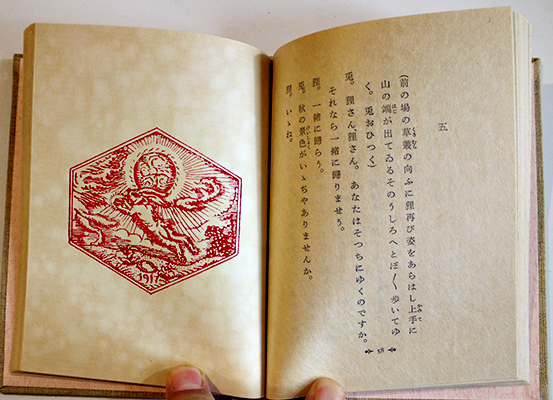 五
(前の場の草叢の向ふに狸再び姿をあらはし上手に
山の端が出てゐるそのうしろへとぼ〱歩いてゆ
く。兎おひつく)
兎。狸さん、狸さん。あなたはそつちにゆくのですか。
それなら一緒に歸りませう。
狸。一緒に歸らう。
兎。秋の景色がいゝぢやありませんか。
狸。いゝね。
58
1915